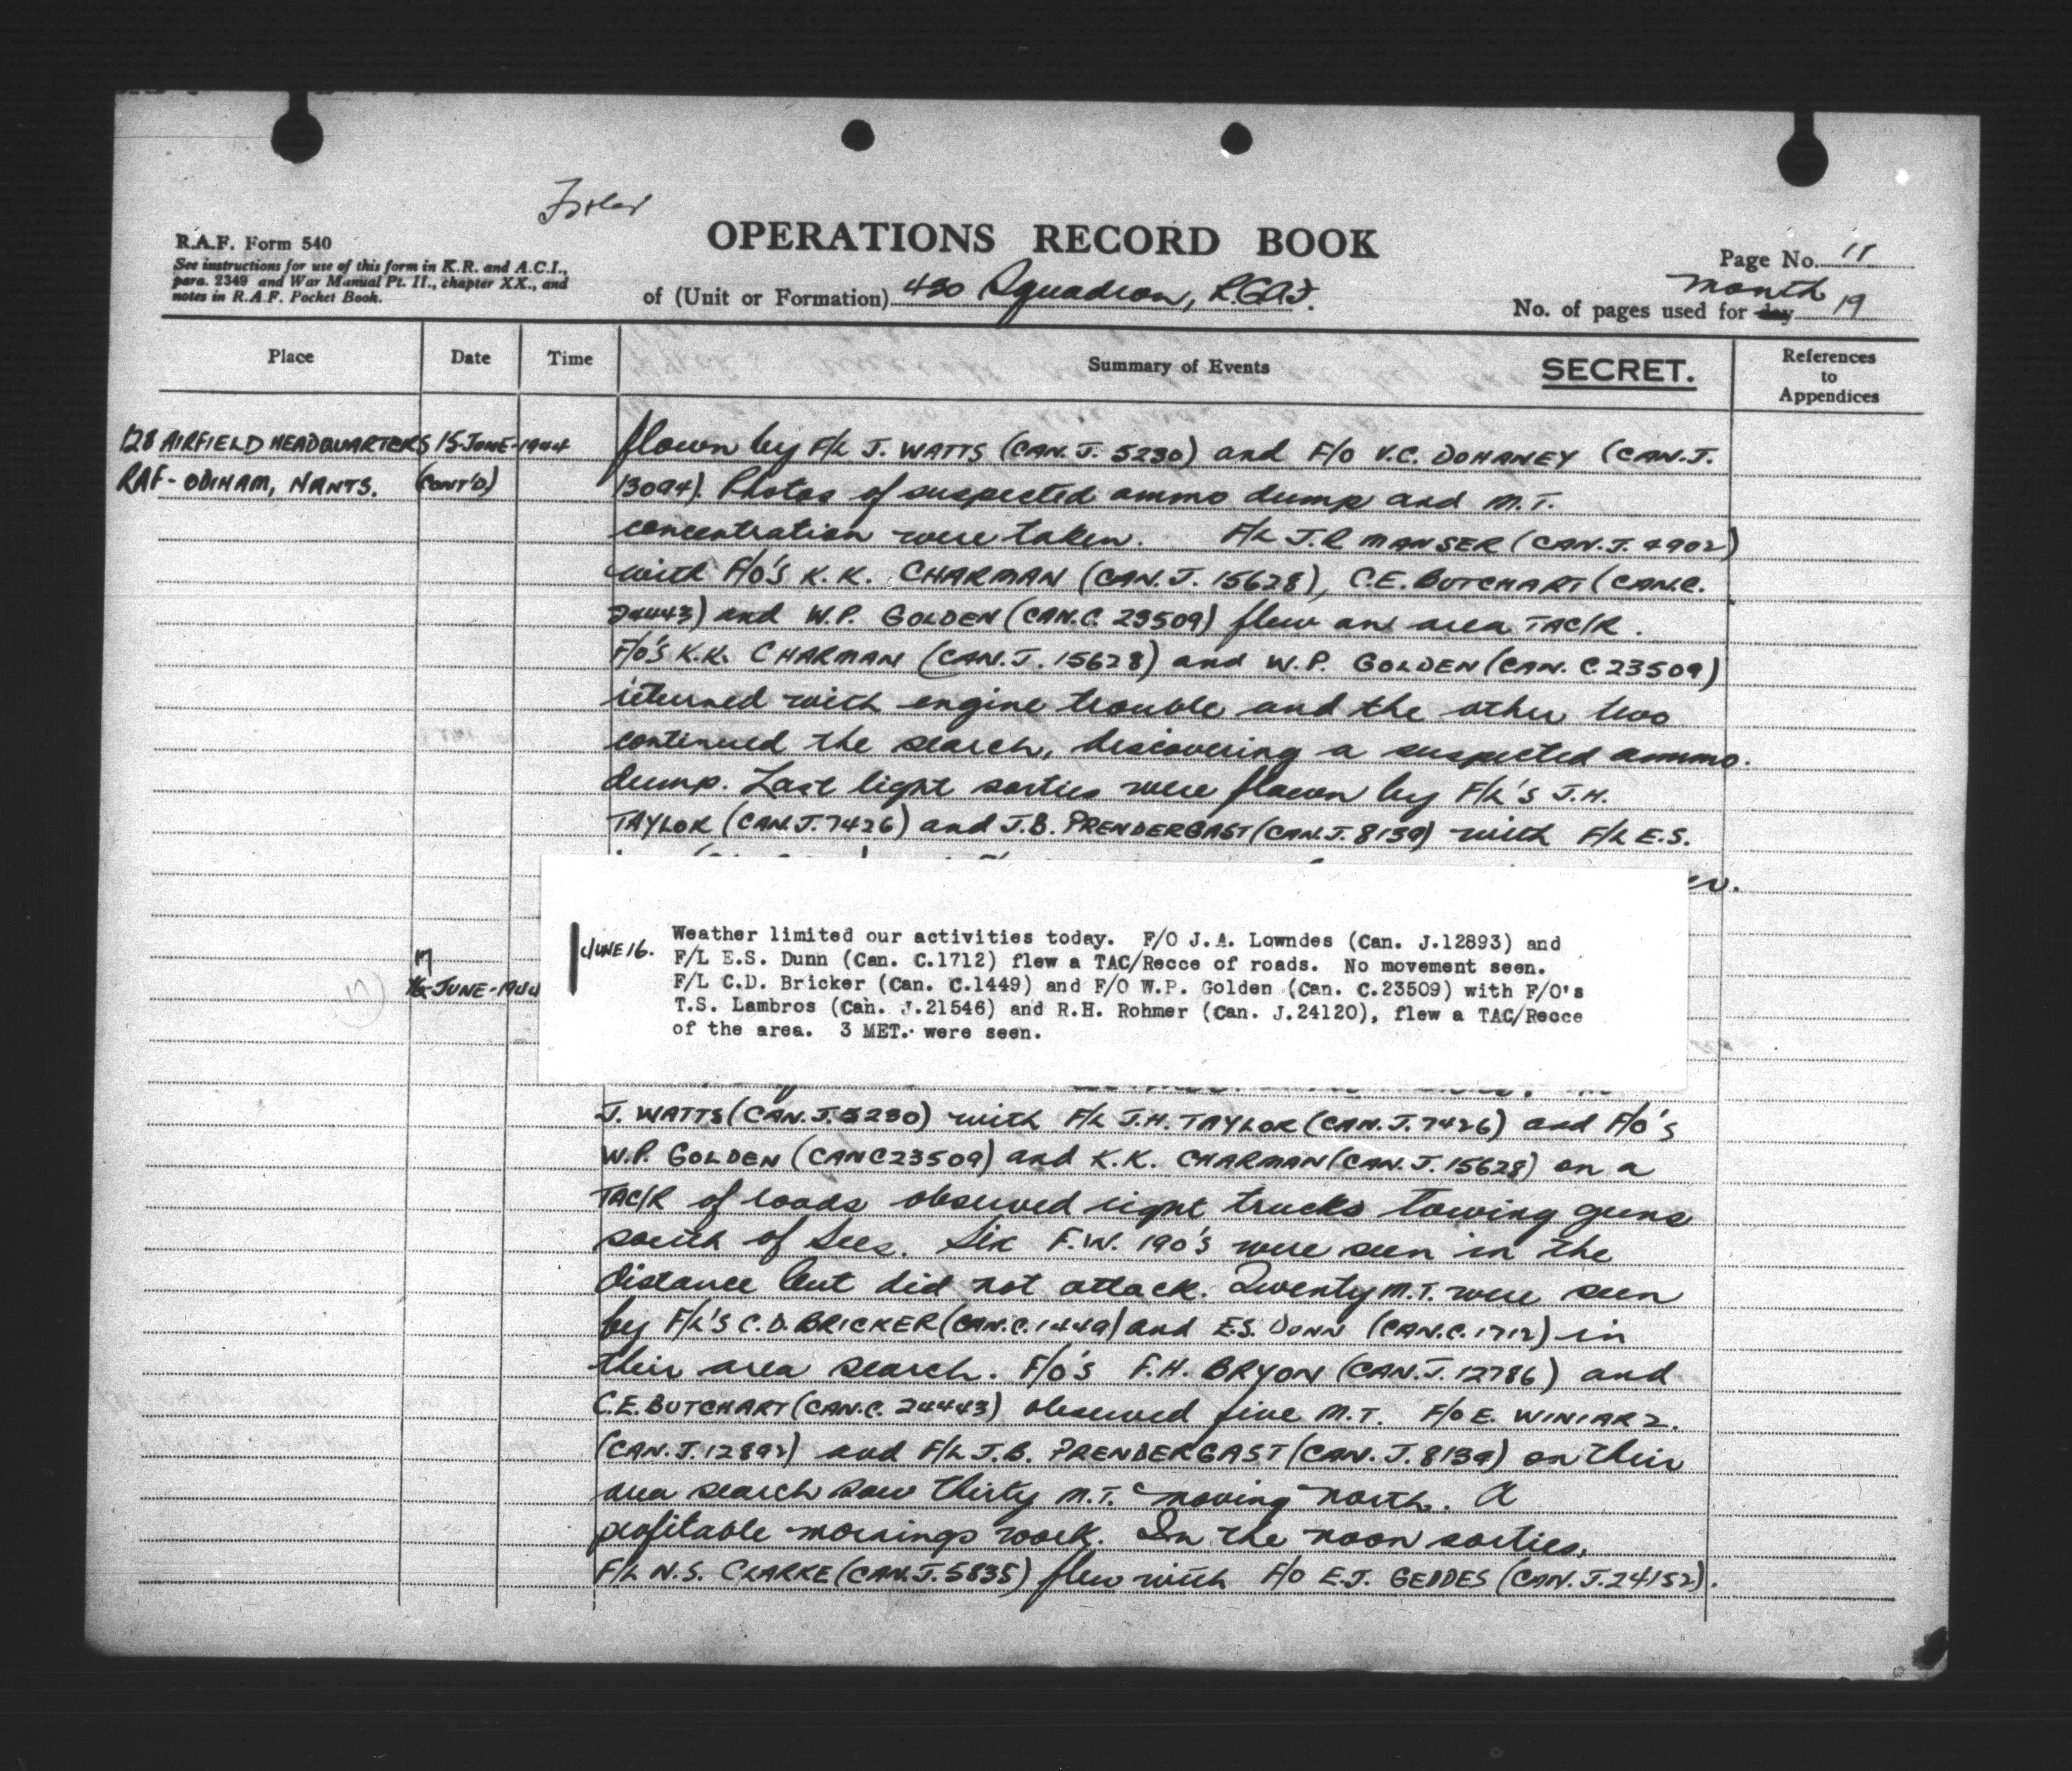 OPERATIONS RECORD BOOK
R.A.F. Form 540
See instructions for use of this form in K.R. and A.C.I.,
para. 2349 and War Manual Pt. II., chapter XX., and
notes in R.A.F. Pocket Book.
of (Unit or Formation) 430 Squadron, R.C.A.F.
Page No. 11
month
No. of pages used for day 19
Place Date Time Summary of Events SECRET. References to Appendices
128 AIRFIELD HEADQUARTERS 15-JUNE-1944 flown by F/L J. WATTS (CAN.J. 5230) and F/O V.C. DOHANEY (CAN.J.
RAF-ODIHAM, HANTS. (CONT'D) 13094). Photos of suspected ammo dump and M.T.
concentration were taken. F/L J.R MANSER (CAN.J. 4902)
with F/O'S K.K. CHARMAN (CAN.J. 15628), C.E. BUTCHART (CAN.C.
24443) and W.P. GOLDEN (CAN.C. 23509) flew an area TAC/R.
F/O'S K.K. CHARMAN (CAN.J. 15628) and W.P. GOLDEN (CAN. C.23509)
returned with engine trouble and the other two
continued the search, discovering a suspected ammo.
dump. Last light sorties were flown by F/L'S J.H.
TAYLOR (CAN.J.7426) and J.B. PRENDERGAST (CAN.J. 8139) with F/L E.S.
JUNE 16. Weather limited our activities today. F/O J.A. Lowndes (Can. J.12893) and
F/L E.S. Dunn (Can. C.1712) flew a TAC/Recce of roads. No movement seen.
F/L C.D. Bricker (Can. C.1449) and F/O W.P. Golden (Can. C.23509) with F/O's
T.S. Lambros (Can. J.21546) and R.H. Rohmer (Can. J.24120), flew a TAC/Recce
of the area. 3 MET. were seen.
17
16-JUNE-1944
J. WATTS (CAN.J.5230) with F/L J.H. TAYLOR (CAN.J.7426) and F/O'S
W.P. GOLDEN (CAN C23509) and K.K. CHARMAN (CAN.J. 15628) on a
TAC/R of roads observed eight trucks towing guns
south of Sees. Six F.W. 190'S were seen in the
distance but did not attack. Twenty M.T. were seen
by F/L'S C.D. BRICKER (CAN.C.1449) and E.S. DUNN (CAN.C.1712) in
their area search. F/O'S F.H. BRYON (CAN.J. 12786) and
C.E. BUTCHART (CAN.C. 24443) observed five M.T. F/O E. WINIARZ.
(CAN.J.12892) and F/L J.B. PRENDERGAST (CAN.J. 8139) on their
area search saw thirty M.T. moving north. A
profitable mornings work. In the noon sorties,
F/L N.S. CLARKE (CAN.J.5835) flew with F/O E.J. GEDDES (CAN.J.24152).